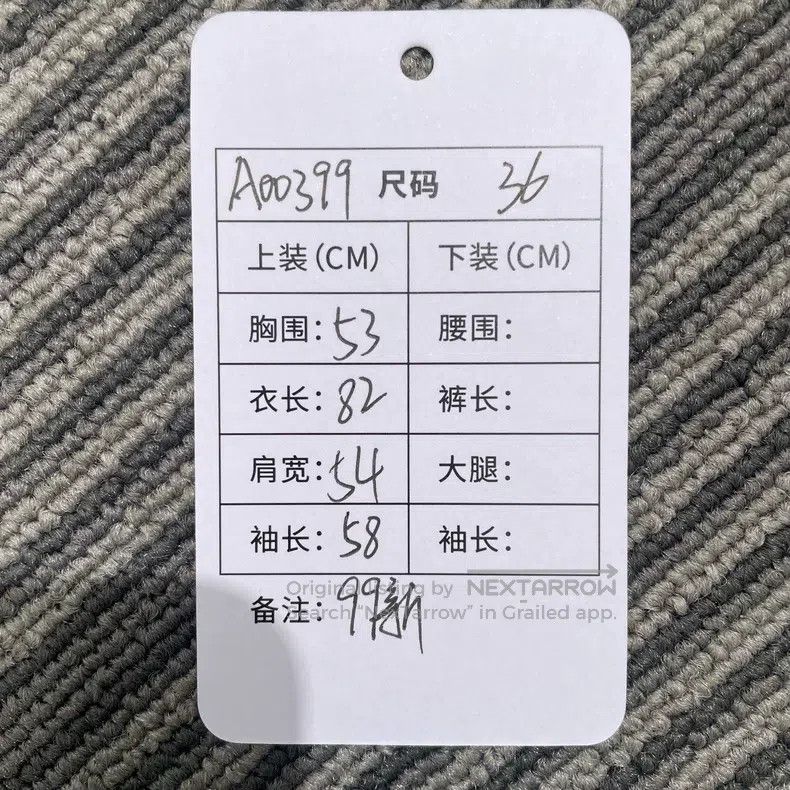 A00399 尺码 36
上装(CM) 下装(CM)
胸围：53 腰围：
衣长：82 裤长：
肩宽：54 大腿：
袖长：58 袖长：
Original listing by NEXTARROW
备注：99新
Search “NextArrow” in Grailed app.